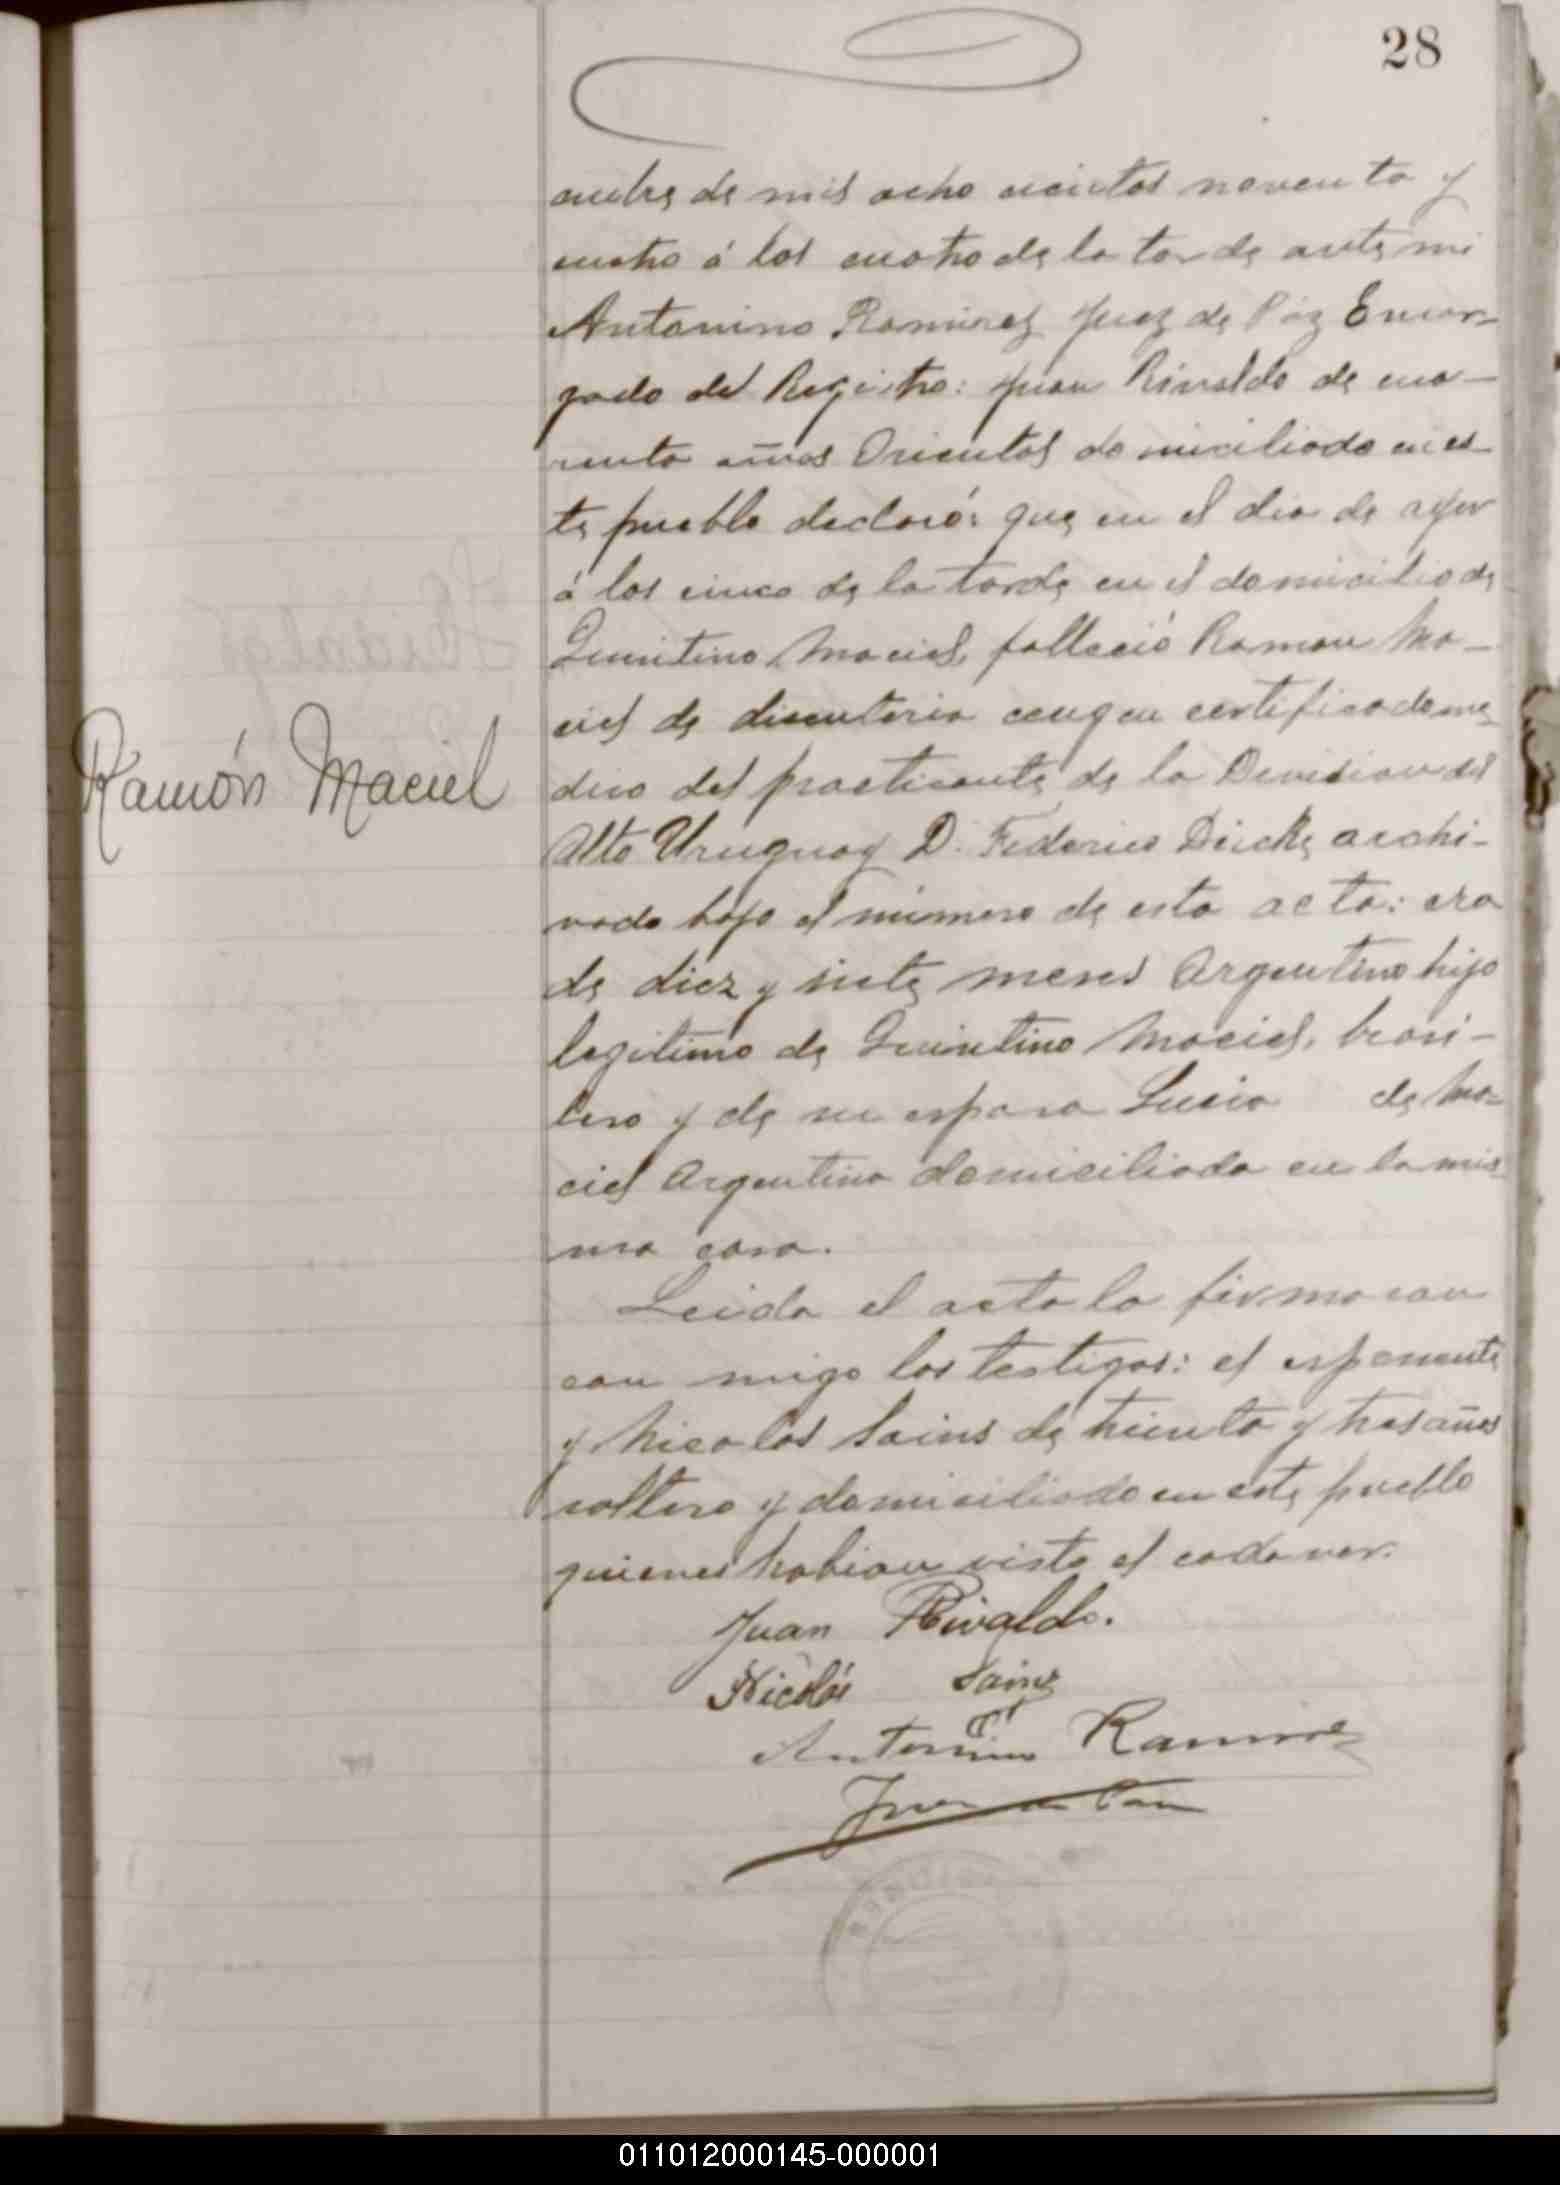 28
embre de mil ocho cientos noventa y
cuatro á las cuatro de la tarde ante mi
Antonino Ramirez Juez de Paz Encar-
gado del Registro: Juan Rivaldo de cua-
renta años Oriental domiciliado en es-
te pueblo declaró: que en el dia de ayer
á las cinco de la tarde en el domicilio de
Quintino Maciel, falleció Ramon Ma-
ciel de disenteria según certificado me-
dico del practicante de la Division del
Alto Uruguay D. Federico Dicke archi-
vado bajo el número de esta acta: era
de diez y siete meses Argentino hijo
legitimo de Quintino Maciel, brasi-
lero y de su esposa Lucia de Ma-
ciel Argentina domiciliada en la mis-
ma casa.
Ramón Maciel
Leida el acta la firmaron
con migo los testigos: el esponente
y Nicolas Sains de treinta y tres años
soltero y domiciliado en este pueblo
quienes habian visto el cadaver.
Juan Rivaldo.
Nicolás Sainz
Antonino Ramirez
Juez de Paz
011012000145-000001